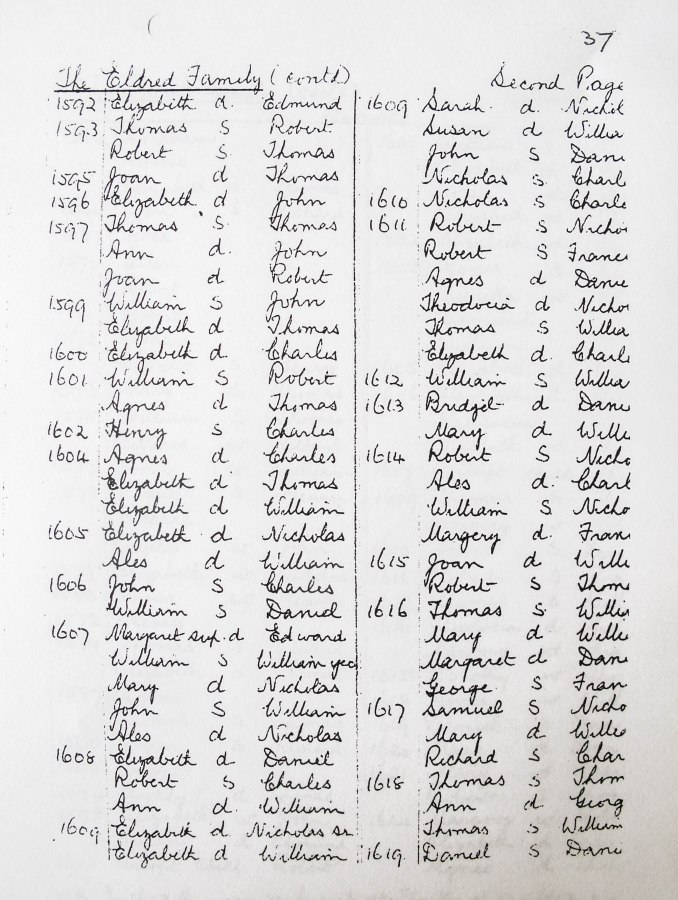 37
The Eldred Family (contd)
Second Page
1592 Elizabeth d. Edmund
1593 Thomas S Robert
Robert S Thomas
1595 Joan d Thomas
1596 Elizabeth d John
1597 Thomas S. Thomas
Ann d. John
Joan d Robert
1599 William S John
Elizabeth d Thomas
1600 Elizabeth d. Charles
1601 William S Robert
Agnes d Thomas
1602 Henry S Charles
1604 Agnes d Charles
Elizabeth d Thomas
Elizabeth d William
1605 Elizabeth d Nicholas
Ales d William
1606 John S Charles
William S Daniel
1607 Margaret sup. d Edward
William S William yeo
Mary d Nicholas
John S William
Ales d Nicholas
1608 Elizabeth d Daniel
Robert S Charles
Ann d. William
1609 Elizabeth d Nicholas sr.
Elizabeth d William
1609 Sarah. d. Nichol
Susan d Willia
John S Dani
Nicholas S. Charl
1610 Nicholas S Charle
1611 Robert S Nicho
Robert S France
Agnes d Danie
Theodocia d Nicho
Thomas S Willia
Elizabeth d. Charl
1612 William S Willia
1613 Bridget d Dani
Mary d Willi
1614 Robert S Nicho
Ales d. Charl
William S Nicho
Margery d. Fran
1615 Joan d Willi
Robert S Thom
1616 Thomas S Willi
Mary d Willi
Margaret d Dani
George S Fran
1617 Samuel S Nicho
Mary d Willi
Richard S Char
1618 Thomas S Thom
Ann d. Georg
Thomas S William
1619. Daniel S Dani